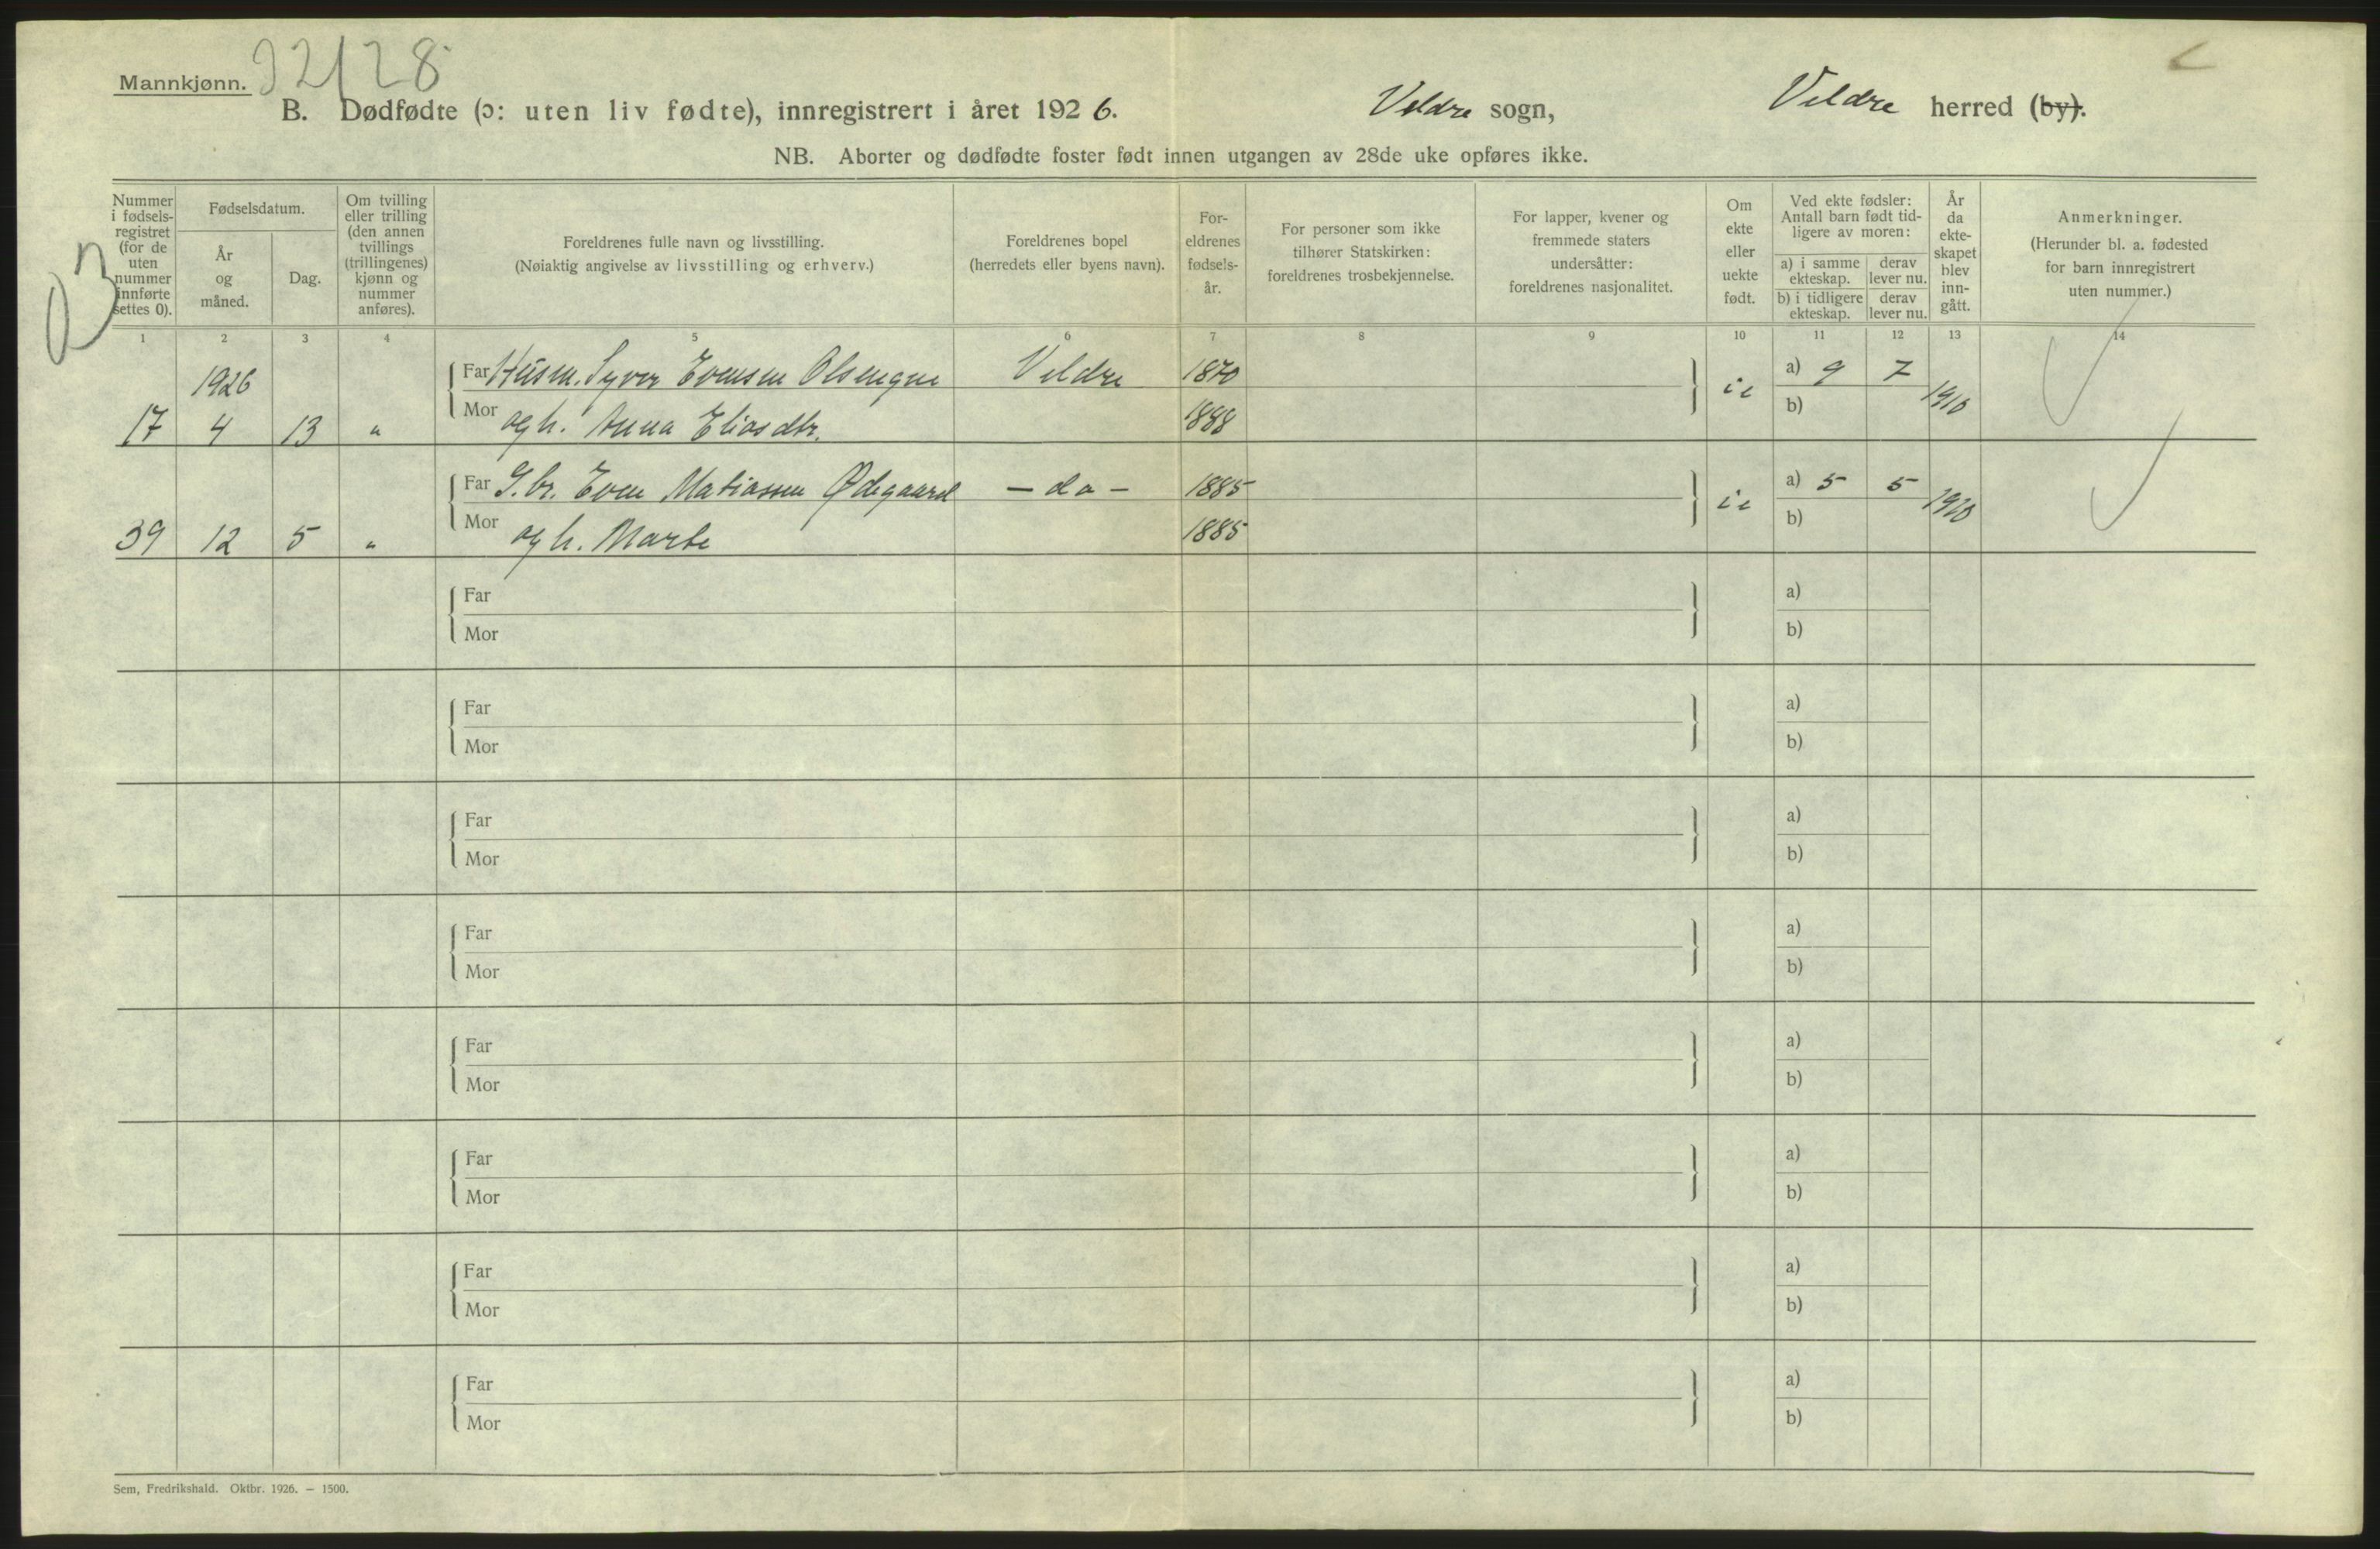 Mannkjønn.
92/28
B. Dødfødte (ɔ: uten liv fødte), innregistrert i året 1926. Veldre sogn, Veldre herred (by).
NB. Aborter og dødfødte foster født innen utgangen av 28de uke opføres ikke.
Nummer i fødsels-registret (for de uten nummer innførte settes 0).
Fødselsdatum.
År og måned.
Dag.
Om tvilling eller trilling (den annen tvillings (trillingenes) kjønn og nummer anføres).
Foreldrenes fulle navn og livsstilling.
(Nøiaktig angivelse av livsstilling og erhverv.)
Foreldrenes bopel
(herredets eller byens navn).
For-eldrenes fødsels-år.
For personer som ikke tilhører Statskirken: foreldrenes trosbekjennelse.
For lapper, kvener og fremmede staters undersåtter: foreldrenes nasjonalitet.
Om ekte eller uekte født.
Ved ekte fødsler: Antall barn født tid-ligere av moren:
a) i samme ekteskap. derav lever nu.
b) i tidligere ekteskap. derav lever nu.
År da ekte-skapet blev inn-gått.
Anmerkninger.
(Herunder bl. a. fødested for barn innregistrert uten nummer.)
1 2 3 4 5 6 7 8 9 10 11 12 13 14
1926
Far Husm. Syver Evensen Olsengne Veldre 1870 a) 9 7 1910
17 4 13 " Mor og h. Anna Eliasdtr. 1888 b)
Far G.br. Even Matiassen Ødegaard - do - 1885 a) 5 5
39 12 5 " Mor og h. Marte 1885 b)
Far a)
Mor b)
Far a)
Mor b)
Far a)
Mor b)
Far a)
Mor b)
Far a)
Mor b)
Far a)
Mor b)
Far a)
Mor b)
Far a)
Mor b)
Sem, Fredrikshald. Oktbr. 1926. — 1500.